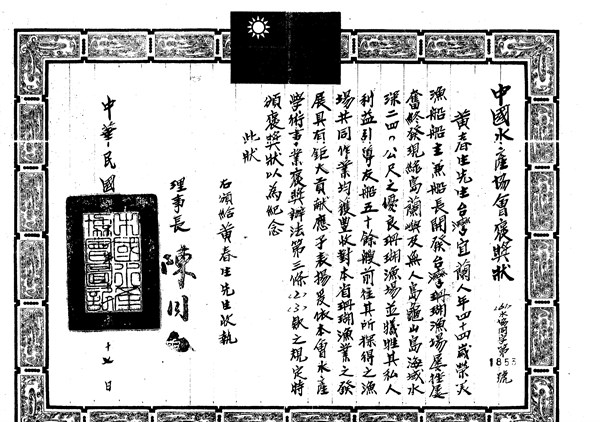 中國水產協會褒獎狀
水協賜字第1853號
黃春生先生台灣宜蘭人年四十四歲榮天
漁船船主兼船長開發台灣珊瑚漁場屢挫屢
奮終發現綠島蘭嶼及無人島龜山島海域水
深二四〇公尺之優良珊瑚漁場並犧牲其私人
利益引導友船五十餘艘前往其所探得之漁
場共同作業均獲豐收對本省珊瑚漁業之發
展具有鉅大貢獻應予表揚爰依本會水產
學術事業褒獎辦法第三條(2)(3)款之規定特
頒褒獎狀以為紀念
此狀
右頒給黃春生先生收執
理事長 陳
中華民國
十七日